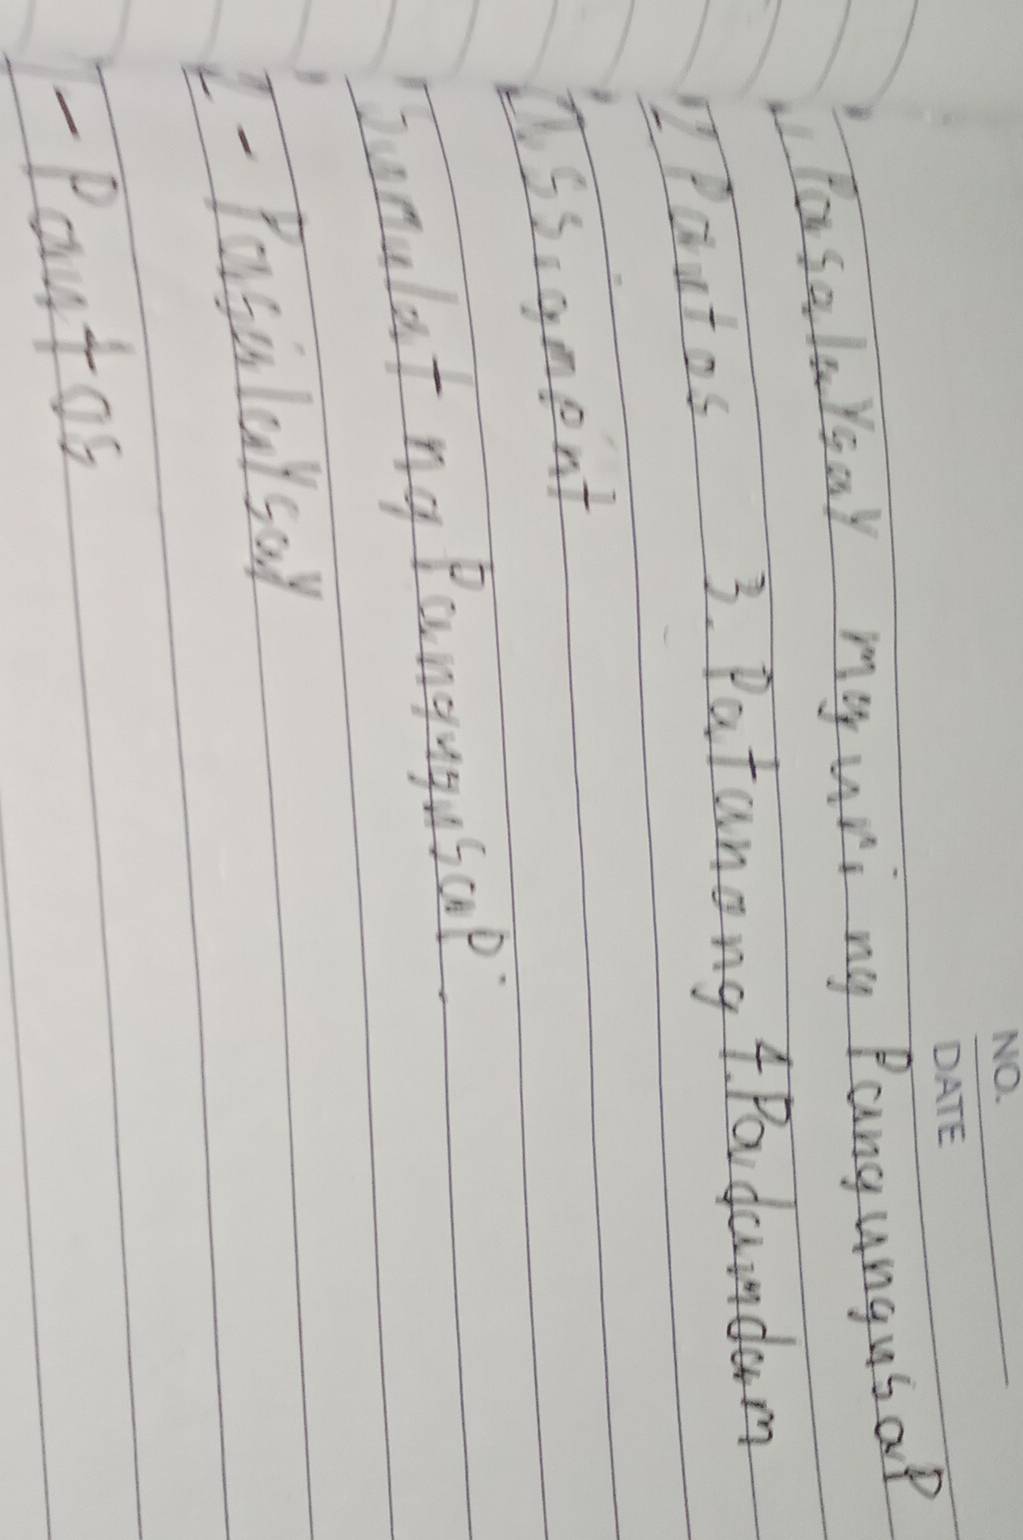 NO.
DATE
1. Pasalaysay mga uri ng Pangungusap
2. Pautos 3. Patanong 4. Padamdam
Assignment
Sumulat ng Pangungusap.
2 - Pasalaysay
1 - Pautos